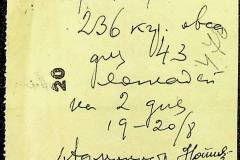 236 кгр. овса
для 43
лошадей
на 2 дня
19-20/8
20